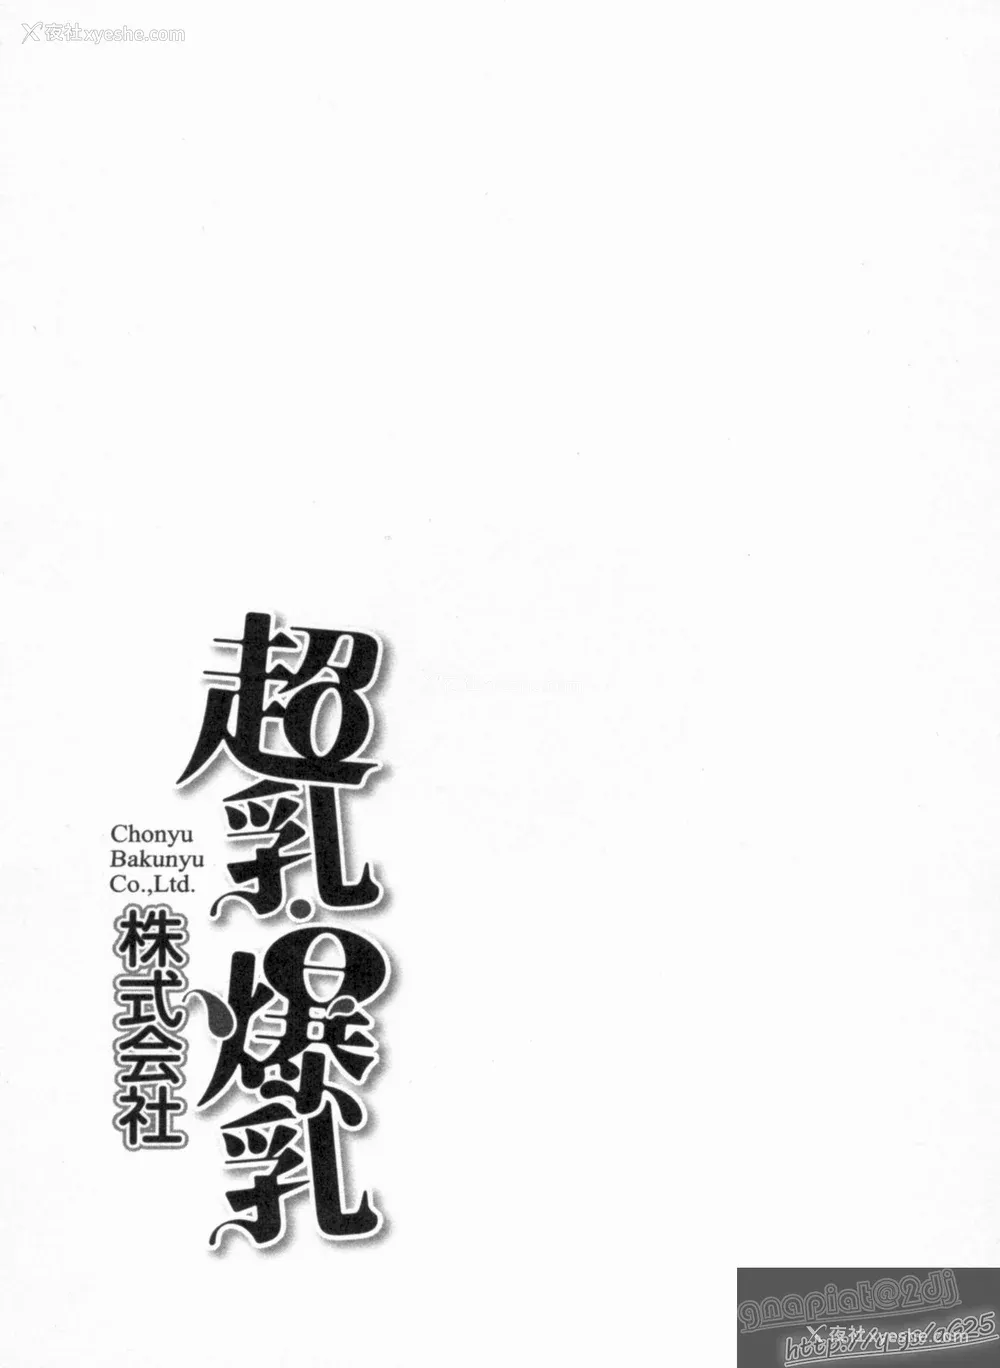 夜社xyeshe.com
超乳・爆乳
Chonyu
Bakunyu
Co.,Ltd.
株式会社
gnapiat@2dj
夜社xyeshe.com